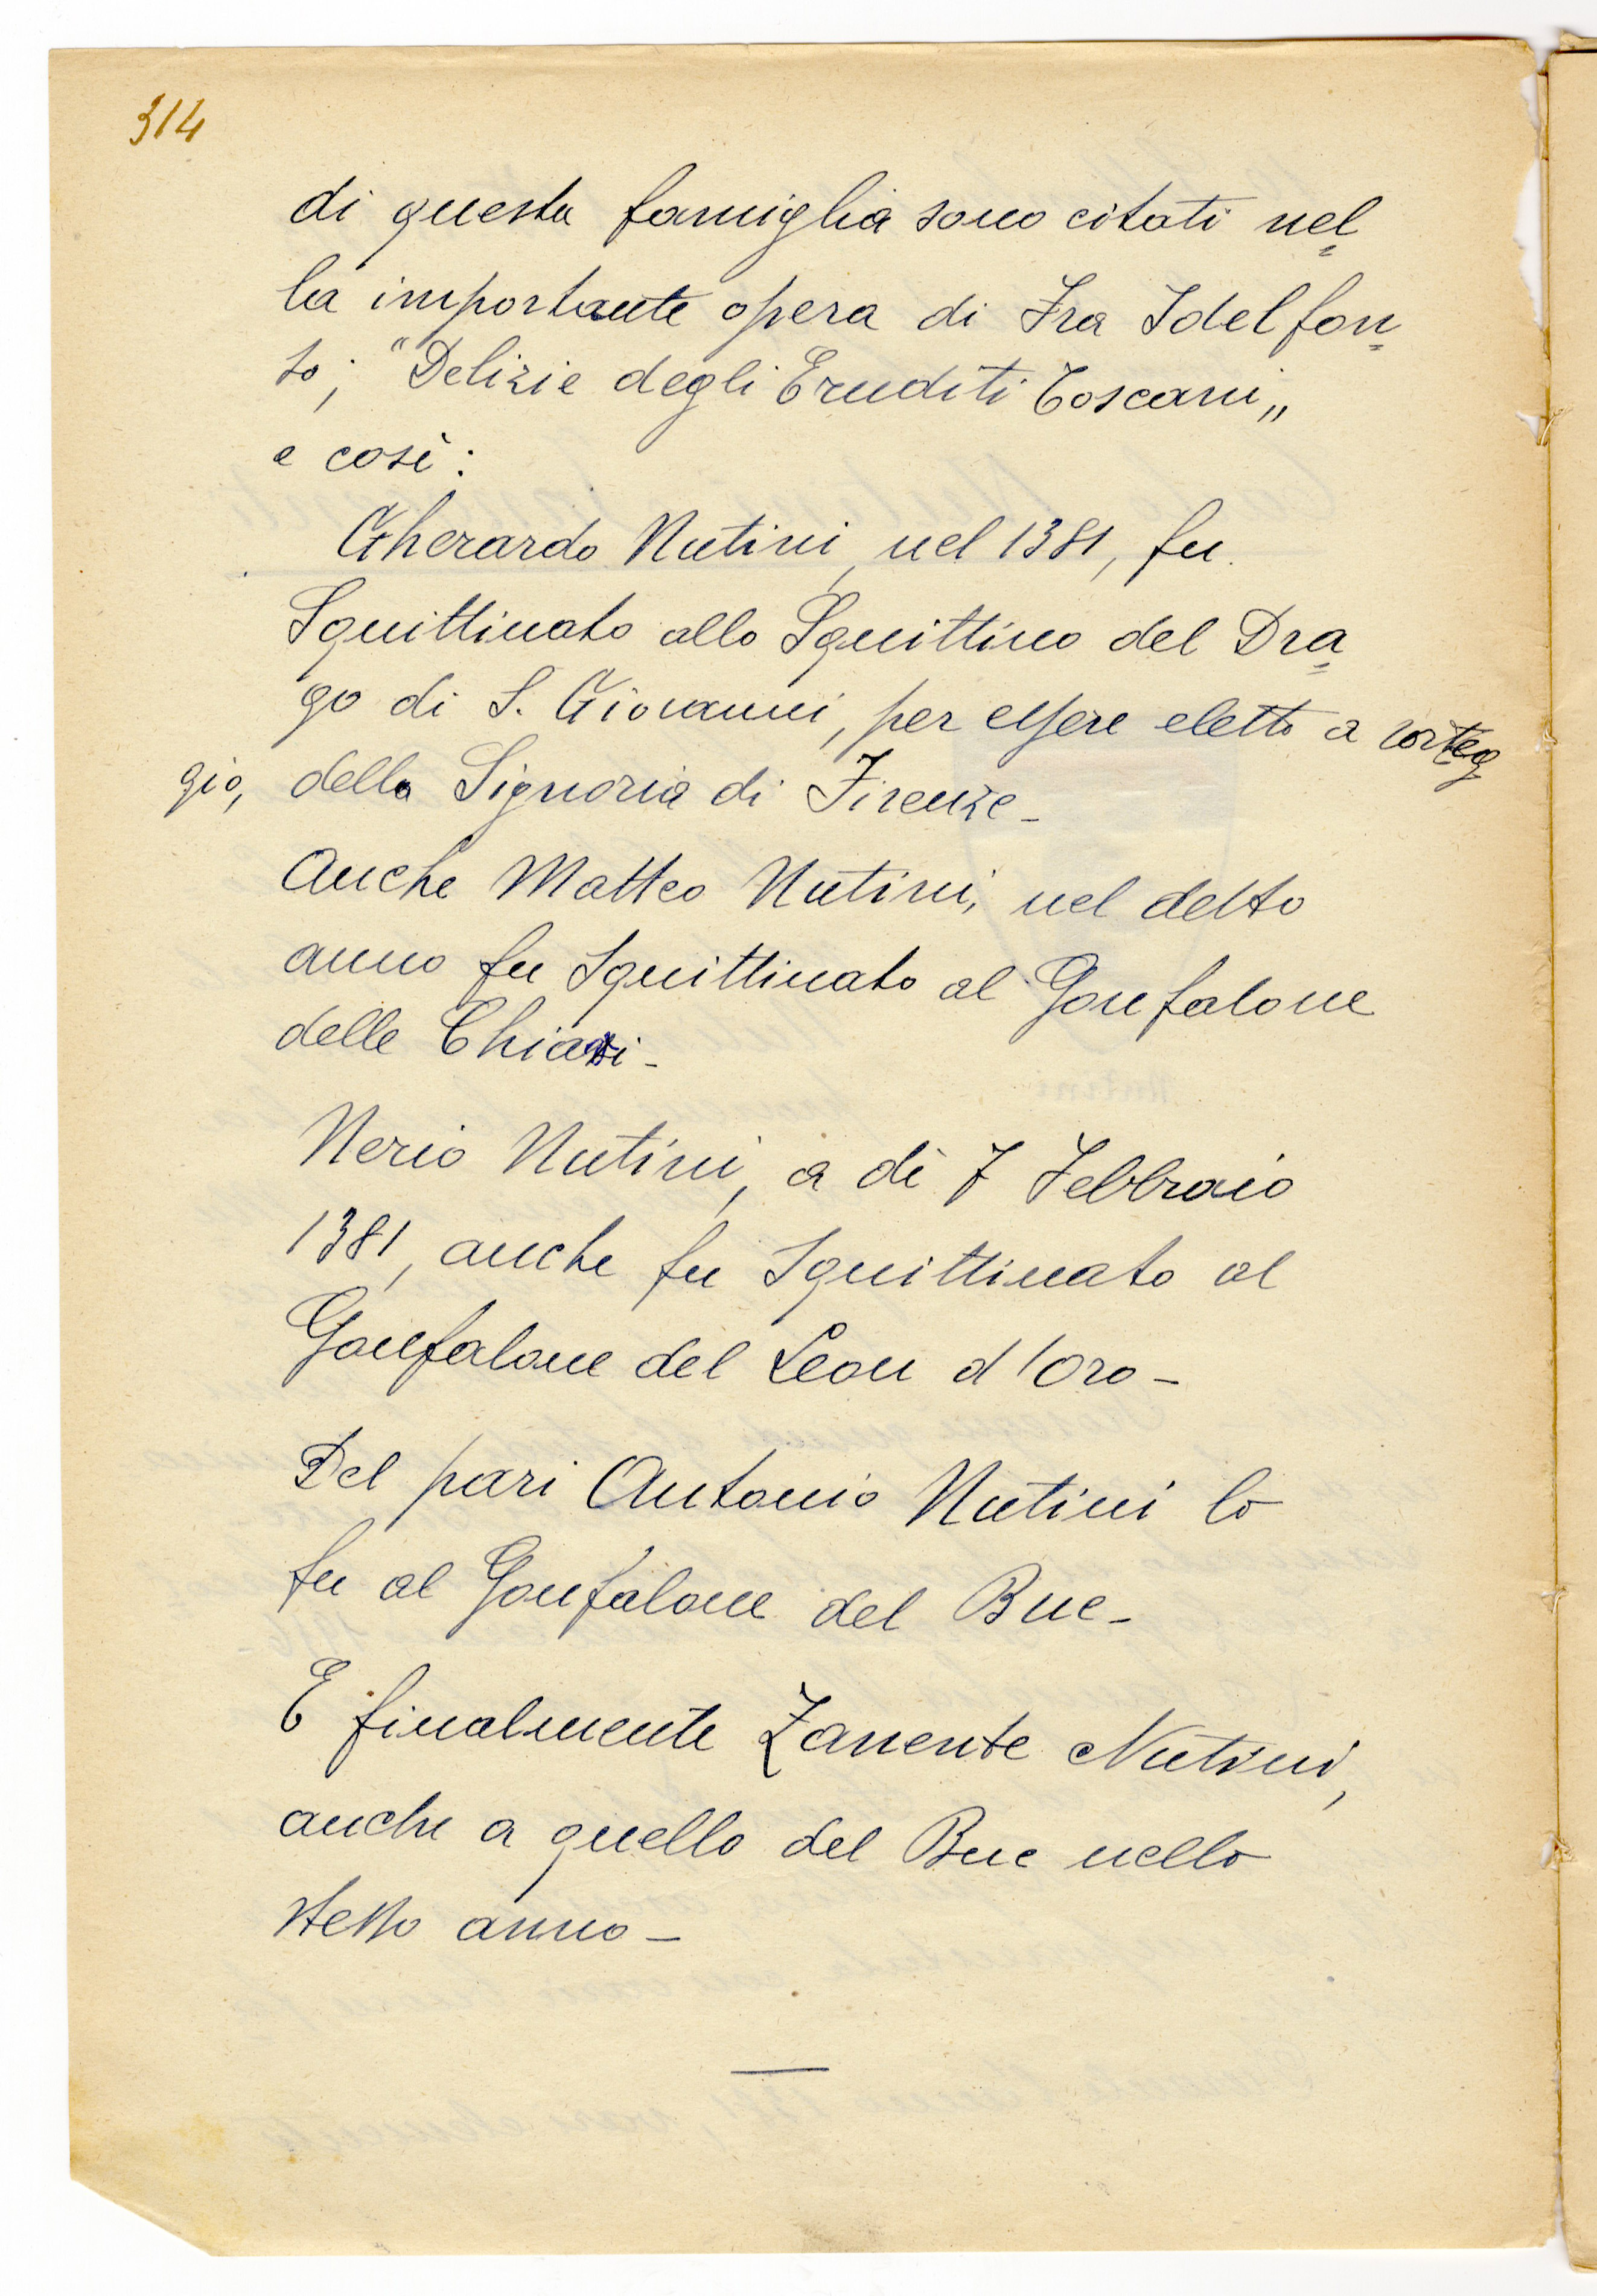 314
di questa famiglia sono citati nel=
la importante opera di Fra Idelfon=
so; "Delizie degli Eruditi Toscani„
e così:
Gherardo Nutini, nel 1381, fu
Squittinato allo Squittino del Dra=
go di S. Giovanni, per essere eletto a corteg
gio, della Signoria di Firenze_
Anche Matteo Nutini, nel detto
anno fu Squittinato al Gonfalone
delle Chiavi_
Nerio Nutini, a dì 7 Febbraio
1381, anche fu Squittinato al
Gonfalone del Leon d'Oro_
Del pari Antonio Nutini lo
fu al Gonfalone del Bue_
E finalmente Zanente Nutini,
anche a quello del Bue nello
stesso anno_